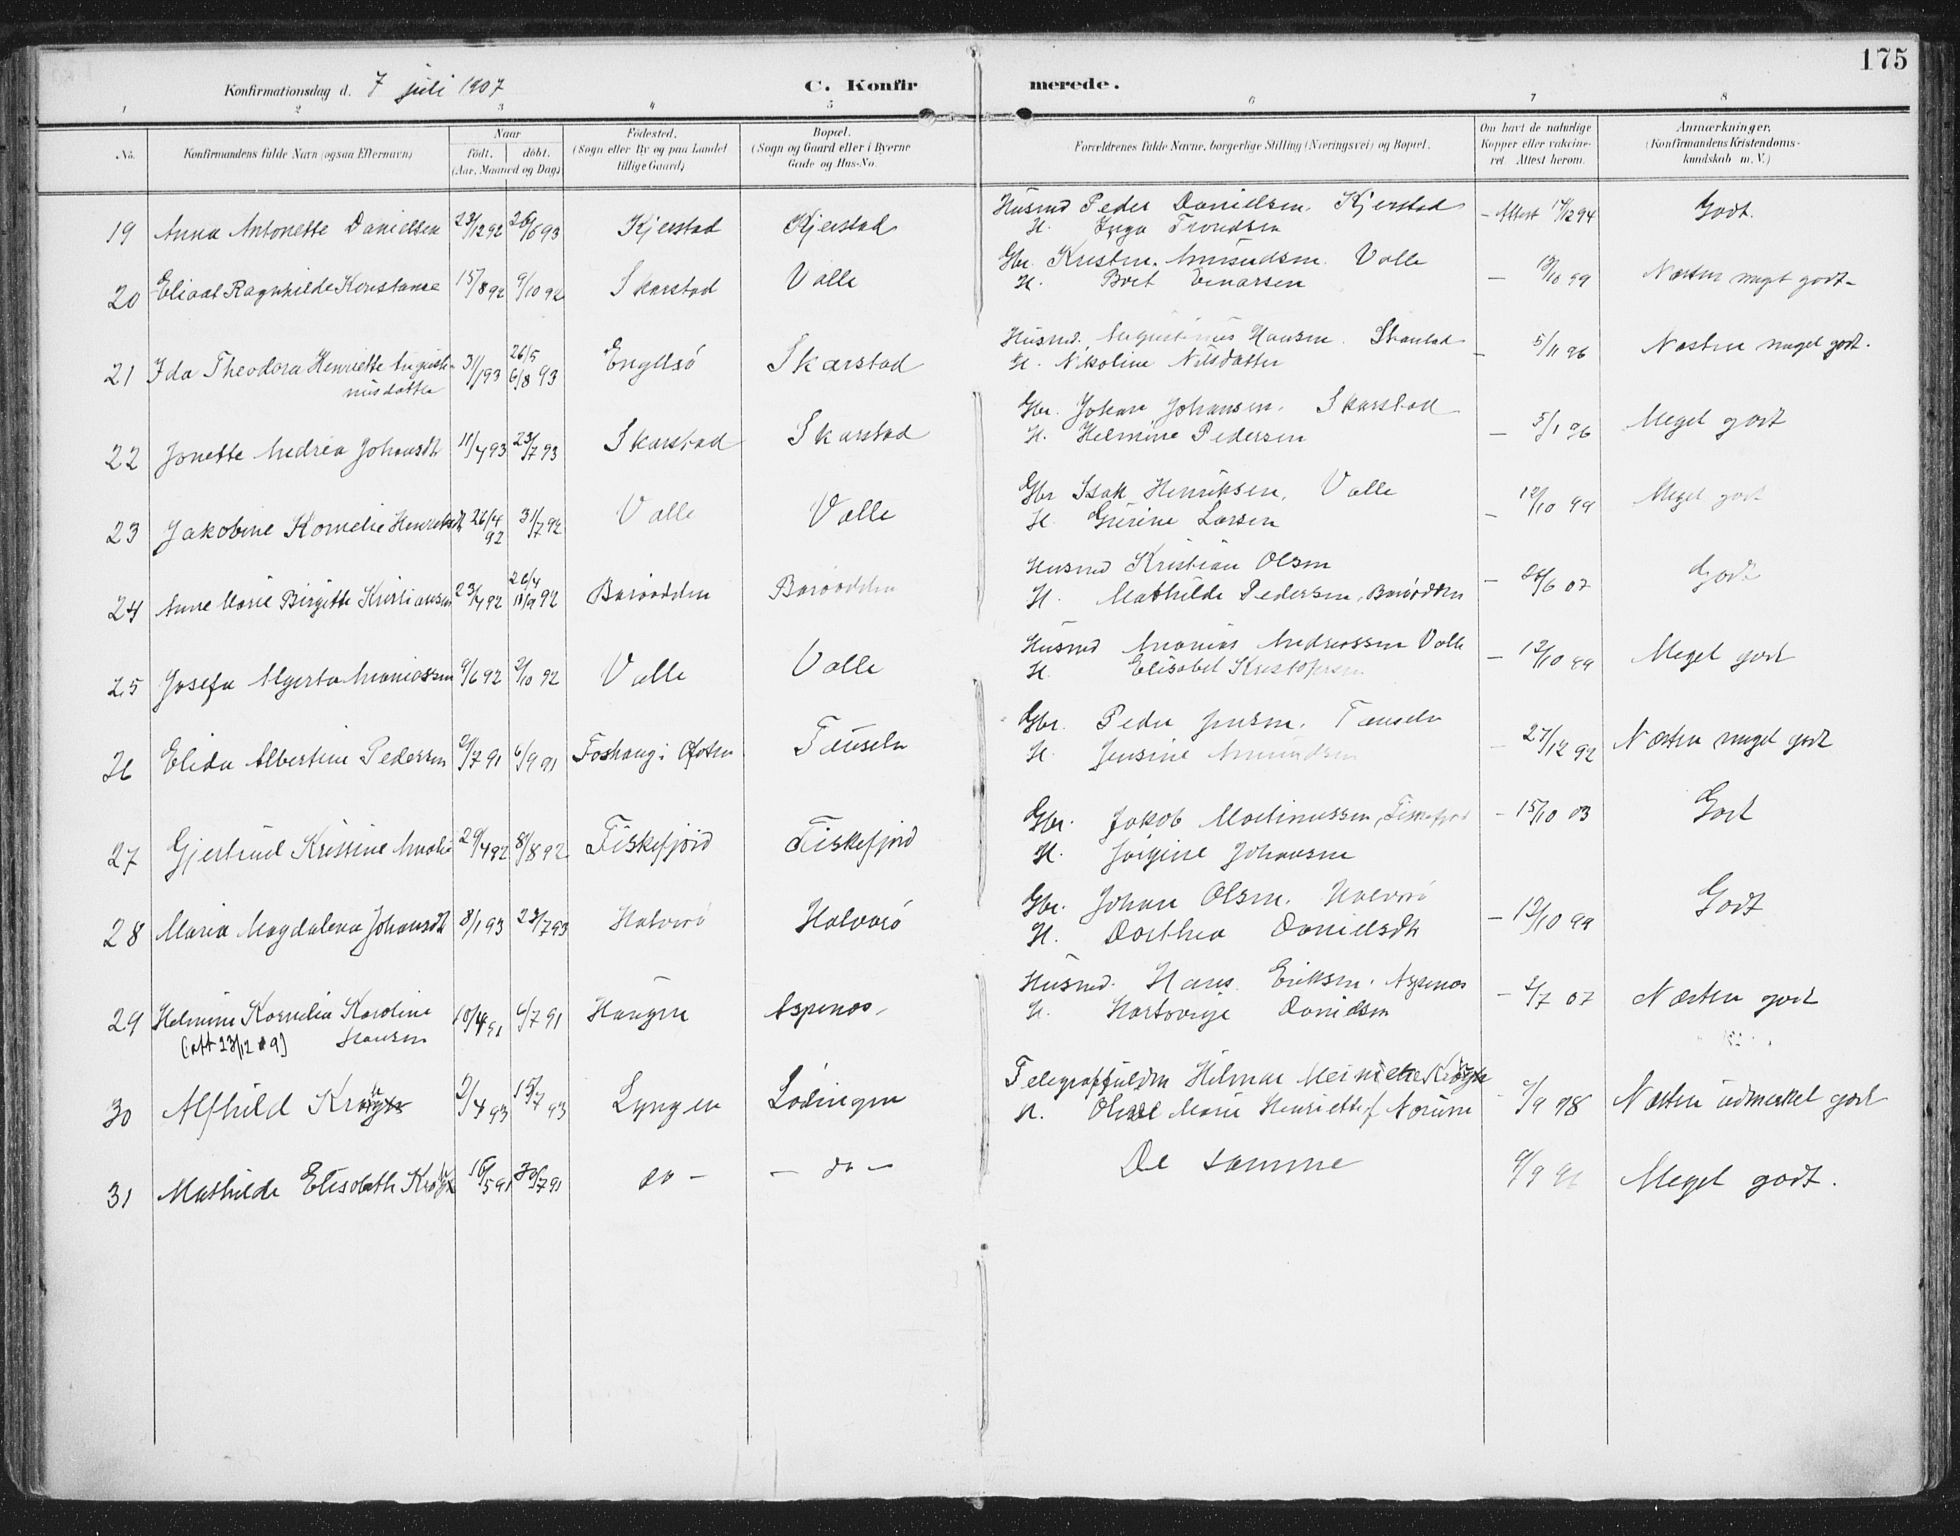 175
Konfirmationsdag d. 7 juli 1907 C. Konfirmerede.
1 2 3 4 5 6 7 8
No. Konfirmandens fulde Navn (ogsaa Efternavn) Naar födt. döbt. (Aar, Maaned og Dag) Födested. (Sogn eller By og paa Landet tillige Gaard) Bopæl. (Sogn og Gaard eller i Byerne Gade og Hus-No. Forældrenes fulde Navne, borgerlige Stilling (Næringsvei) og Bopæl. Om havt de naturlige Kopper eller vaccineret. Attest herom. Anmærkninger. (Konfirmandens Kristendomskundskab m. V.)
19 Anna Antonette Danielsen 23/12 92 26/6 93 Kjerstad Kjerstad Husmd Peder Danielsen. Kjerstad - Attest 17/12 94 Godt.
H. Inga Trondsen
20 Eliaat Ragnhilde Konstanse 15/8 92 9/10 92 Skarstad Valle Gbr. Kristen Amundsen. Valle - 12/10 99 Næsten meget godt-
H. Brit Einarsen
21 Ida Theodora Henriette Augusti- 31/1 93 26/5 6/8 93 Engelsö Skarstad Husmd. Augustinus Hansen. Skarstad - 5/11 96 Næsten meget godt.
nusdatter H. Nikoline Nilsdatter
22 Jonette Andrea Johansdt 11/4 93 23/7 93 Skarstad Skarstad Gbr. Johan Johansen. Skarstad - 5/1 96 Meget godt
H. Helmine Pedersen
23 Jakobine Kornelie Henriksdt 26/4 92 31/7 92 Valle Valle Gbr Isak Henriksen, Valle - 12/10 99 Meget godt
H. Gurine Larsen
24 Anne Marie Birgitte Kristiansen 23/4 92 26/4 18/9 92 Barøodden Barøodden Husmd Kristian Olsen - 24/6 07 Godt
H. Mathilde Pedersen, Barøodden
25 Josefa Algerta Ananiassen 9/6 92 2/10 92 Valle Valle Husmd Ananias Andreassen Valle - 12/10 99 Meget godt
H. Elisabet Kristofersen
26 Elida Albertine Pedersen 2/7 91 6/9 91 Foshaug i Ofoten Teuseln Gbr. Peder Jensen. Teuseln - 27/12 92 Næsten meget godt
H. Jensine Amundsen
27 Gjertrud Kristine Amalie 29/4 92 8/8 92 Fiskefjord Fiskefjord Gbr. Jakob Martinussen, Fiskefjord - 15/10 03 Godt
H. Jørgine Johansen
28 Maria Magdalena Johansdt 8/1 93 23/7 93 Halvarö Halvarö Gbr. Johan Olsen. Halvarö - 12/10 99 Godt
H. Dorthea Danielsdt
29 Helmine Kornelia Karoline 10/4 91 6/7 91 Haugen Aspenes. Husmd. Hans Eriksen. Aspenes - 2/7 07 Næsten godt
Hansen H. Hartvige Danielsen
30 Alfhild 2/4 93 15/7 93 Lyngen Lödingen Hilmar Meincke - 9/9 98 Næsten udmerket godt
H. Marie Henriette f. Norum
31 Mathilde Elisabeth 16/5 91 do - - do - De samme 9/9 Meget godt.